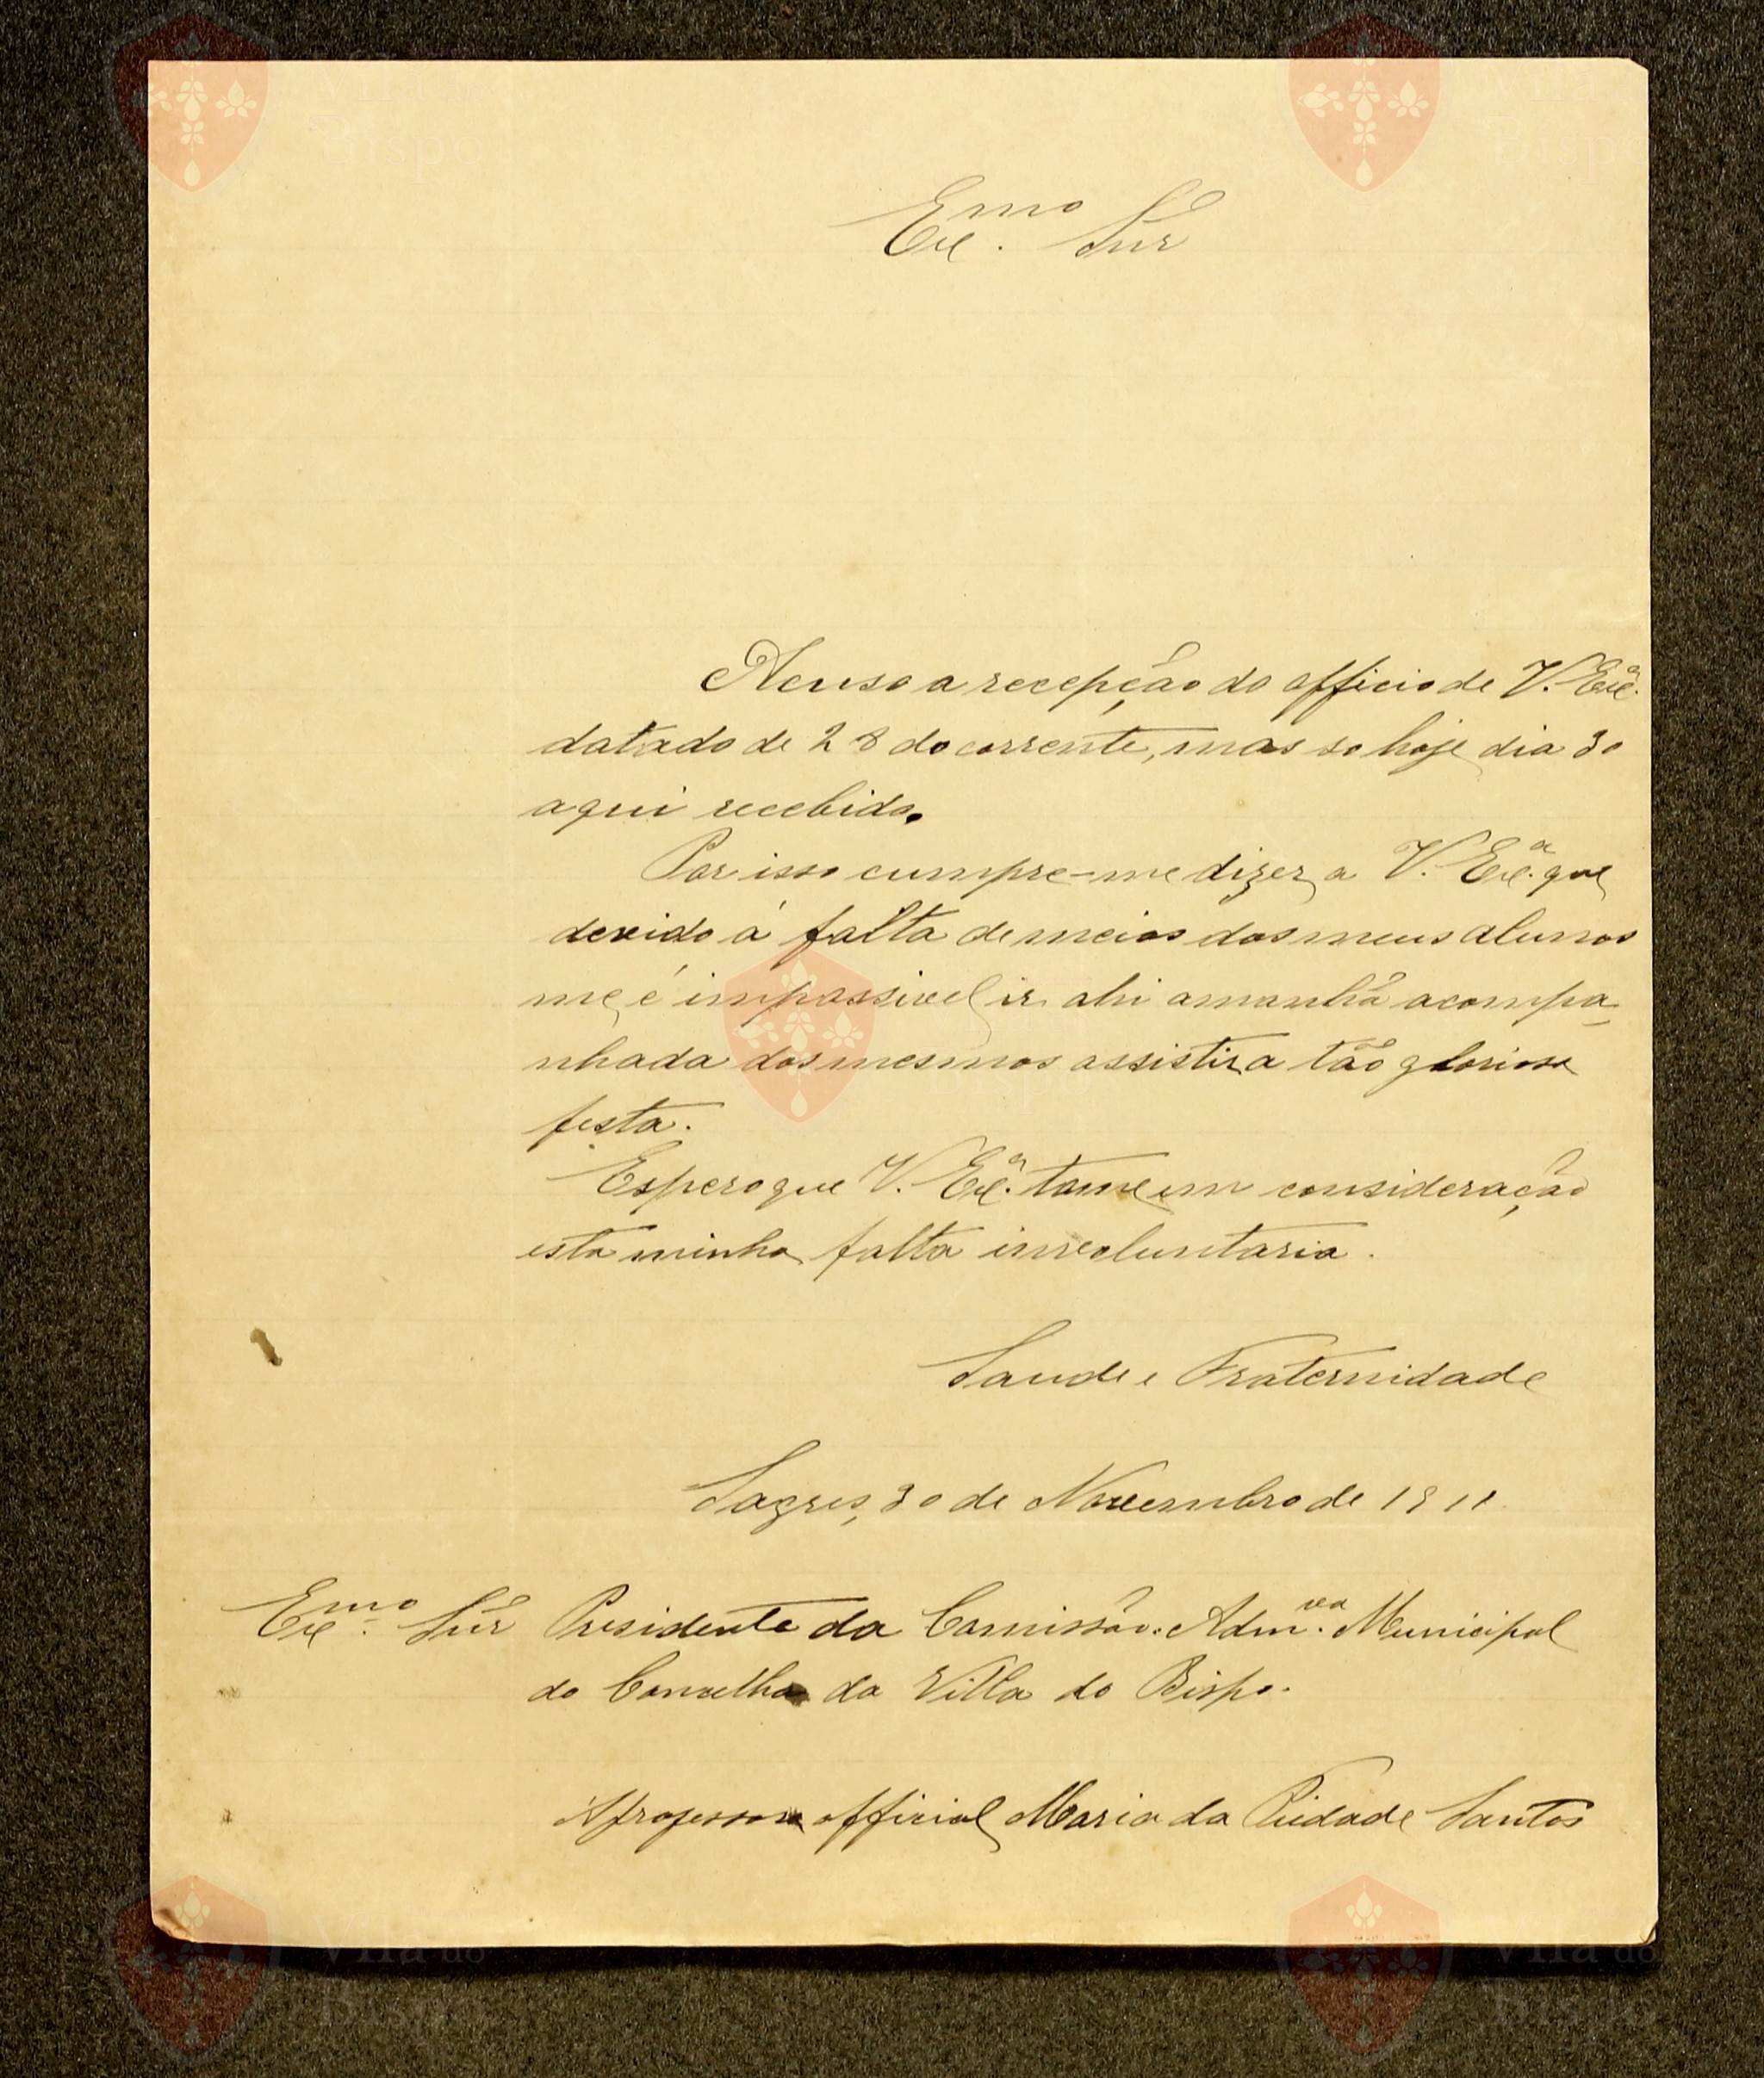 Exmo. Snr
Acuso a recepção do officio de V. Exª.
datado de 28 do corrente, mas so hoje dia 30
aqui recebido.
Por isso cumpre-me dizer a V. Exª. que
devido á falta de meios dos meus alunos
me é impossivel ir ahi amanhã acompa-
nhada dos mesmos assistir a tão gloriosa
festa.
Espero que V. Exª. tome em consideração
esta minha falta involuntaria.
Saude e Fraternidade
Sagres, 30 de Novembro de 1911
Exmo. Snr Presidente da Comissão Admva. Municipal
do Concelho da Villa do Bispo.
A professora official Maria da Piedade Santos
Bispo
Vila do
Bispo
Vila do
Bispo